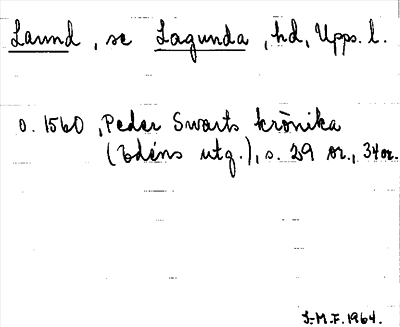 Laund, se Lagunda, hd, Upps. l.
o. 1560, Peder Swarts krönika
(Edéns utg.), s. 29 or., 34 or.
J.M.F. 1964.